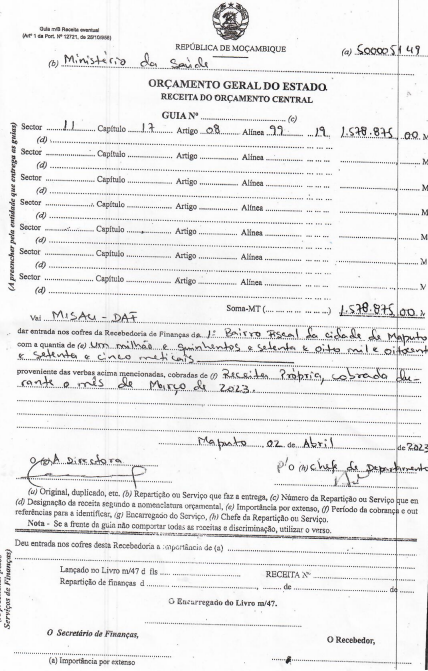 Guia m/B Receita eventual
(Artº 1 da Port. Nº 12721, de 20/10/958)
REPÚBLICA DE MOÇAMBIQUE
(a) 500005149
(b) Ministério da Saúde
ORÇAMENTO GERAL DO ESTADO
RECEITA DO ORÇAMENTO CENTRAL
GUIA Nº ........................ (c)
Sector 11 Capítulo 17 Artigo 08 Alínea 99 19 1.578.875,00 M
(d)
Sector Capítulo Artigo Alínea M
(d)
Sector Capítulo Artigo Alínea M
(d)
Sector Capítulo Artigo Alínea M
(d)
Sector Capítulo Artigo Alínea M
(d)
Sector Capítulo Artigo Alínea M
(d)
Sector Capítulo Artigo Alínea M
(d)
(A preencher pela entidade que entrega as guias)
Soma-MT (.....................) 1.578.875,00 M
Vai MISAU - DAF
dar entrada nos cofres da Recebedoria de Finanças da 1º Bairro Fiscal da cidade de Maputo
com a quantia de (e) Um milhão e quinhentos e setenta e oito mil e oitocent
e setenta e cinco meticais
proveniente das verbas acima mencionadas, cobradas de (f) Receita Própria, cobrada du-
rante o mês de Março de 2023.
Maputo 02 de Abril de 2023
A Directora
p'o (h) Chefe de Departamento
(a) Original, duplicado, etc. (b) Repartição ou Serviço que faz a entrega, (c) Número da Repartição ou Serviço que en
(d) Designação da receita segundo a nomenclatura orçamental, (e) Importância por extenso, (f) Período da cobrança e out
referências para a identificar, (g) Encarregado do Serviço, (h) Chefe da Repartição ou Serviço.
Nota - Se a frente da guia não comportar todas as receitas e discriminação, utilizar o verso.
Deu entrada nos cofres desta Recebedoria a importância de (a)
Lançado no Livro m/47 d fls RECEITA Nº
Repartição de finanças d , de de
O Encarregado do Livro m/47.
Serviços de Finanças)
O Secretário de Finanças,
O Recebedor,
(a) Importância por extenso